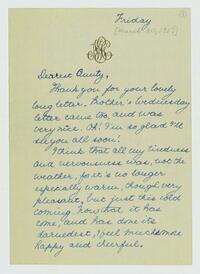 Friday
Dearest Aunty,
Thank you for your lovely
long letter. Mother's Wednesday
letter came too, and was
very nice. Oh! I'm so glad I'll
see you all soon!
I think that all my tiredness
and nervousness was, not the
weather, for it's no longer
especially warm, though very
pleasant, but just this cold
coming. Now that it has
come, and has done its
darndest, I feel much more
happy and cheerful.